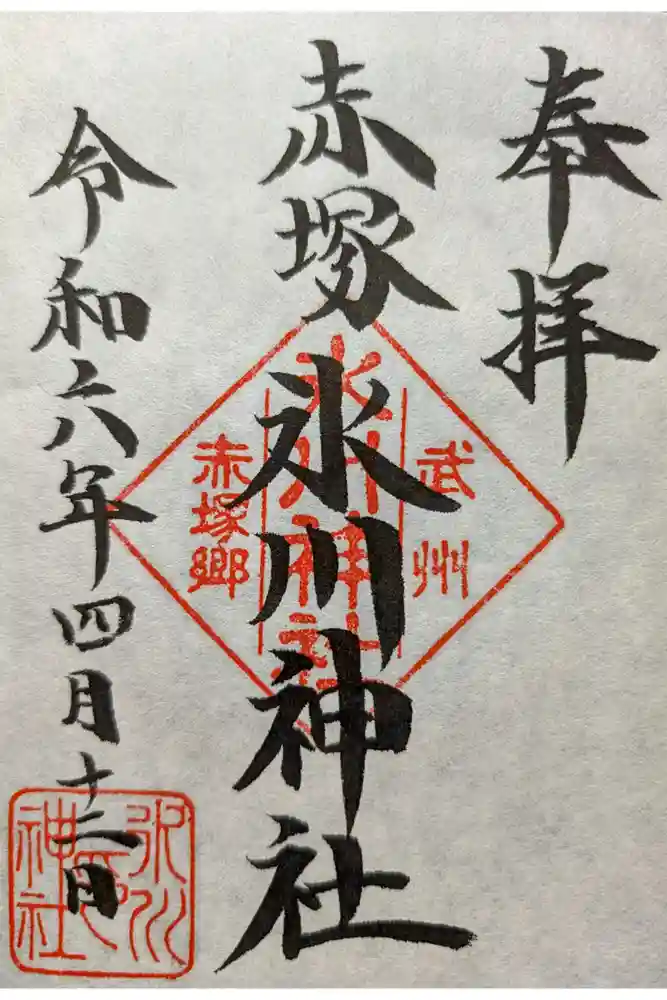 奉拝
武州
赤塚氷川神社
氷川神社
赤塚郷
令和六年四月十二日
氷川神社